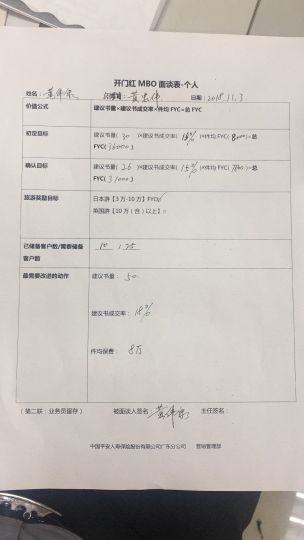 开门红 MBO 面谈表-个人
姓名： 日期：2018.11.3
价值公式 建议书量×建议书成交率×件均 FYC=总 FYC
初定目标 建议书量( 30 )×建议书成交率( 15% )×件均 FYC( 8000 )=总
FYC(36000)
确认目标 建议书量( 26 )×建议书成交率( 15% )×件均 FYC( )=总
FYC(31000)
旅游奖励目标 日本游【3 万-10 万】FYC
英国游【10 万（含）以上】
已储备客户数/需要储备 10 125
客户数
最需要改进的动作 建议书量： 50
建议书成交率：
件均保费： 8万
（第二联：业务员留存） 被面谈人签名： 主任签名：
中国平安人寿保险股份有限公司广东分公司 营销管理部